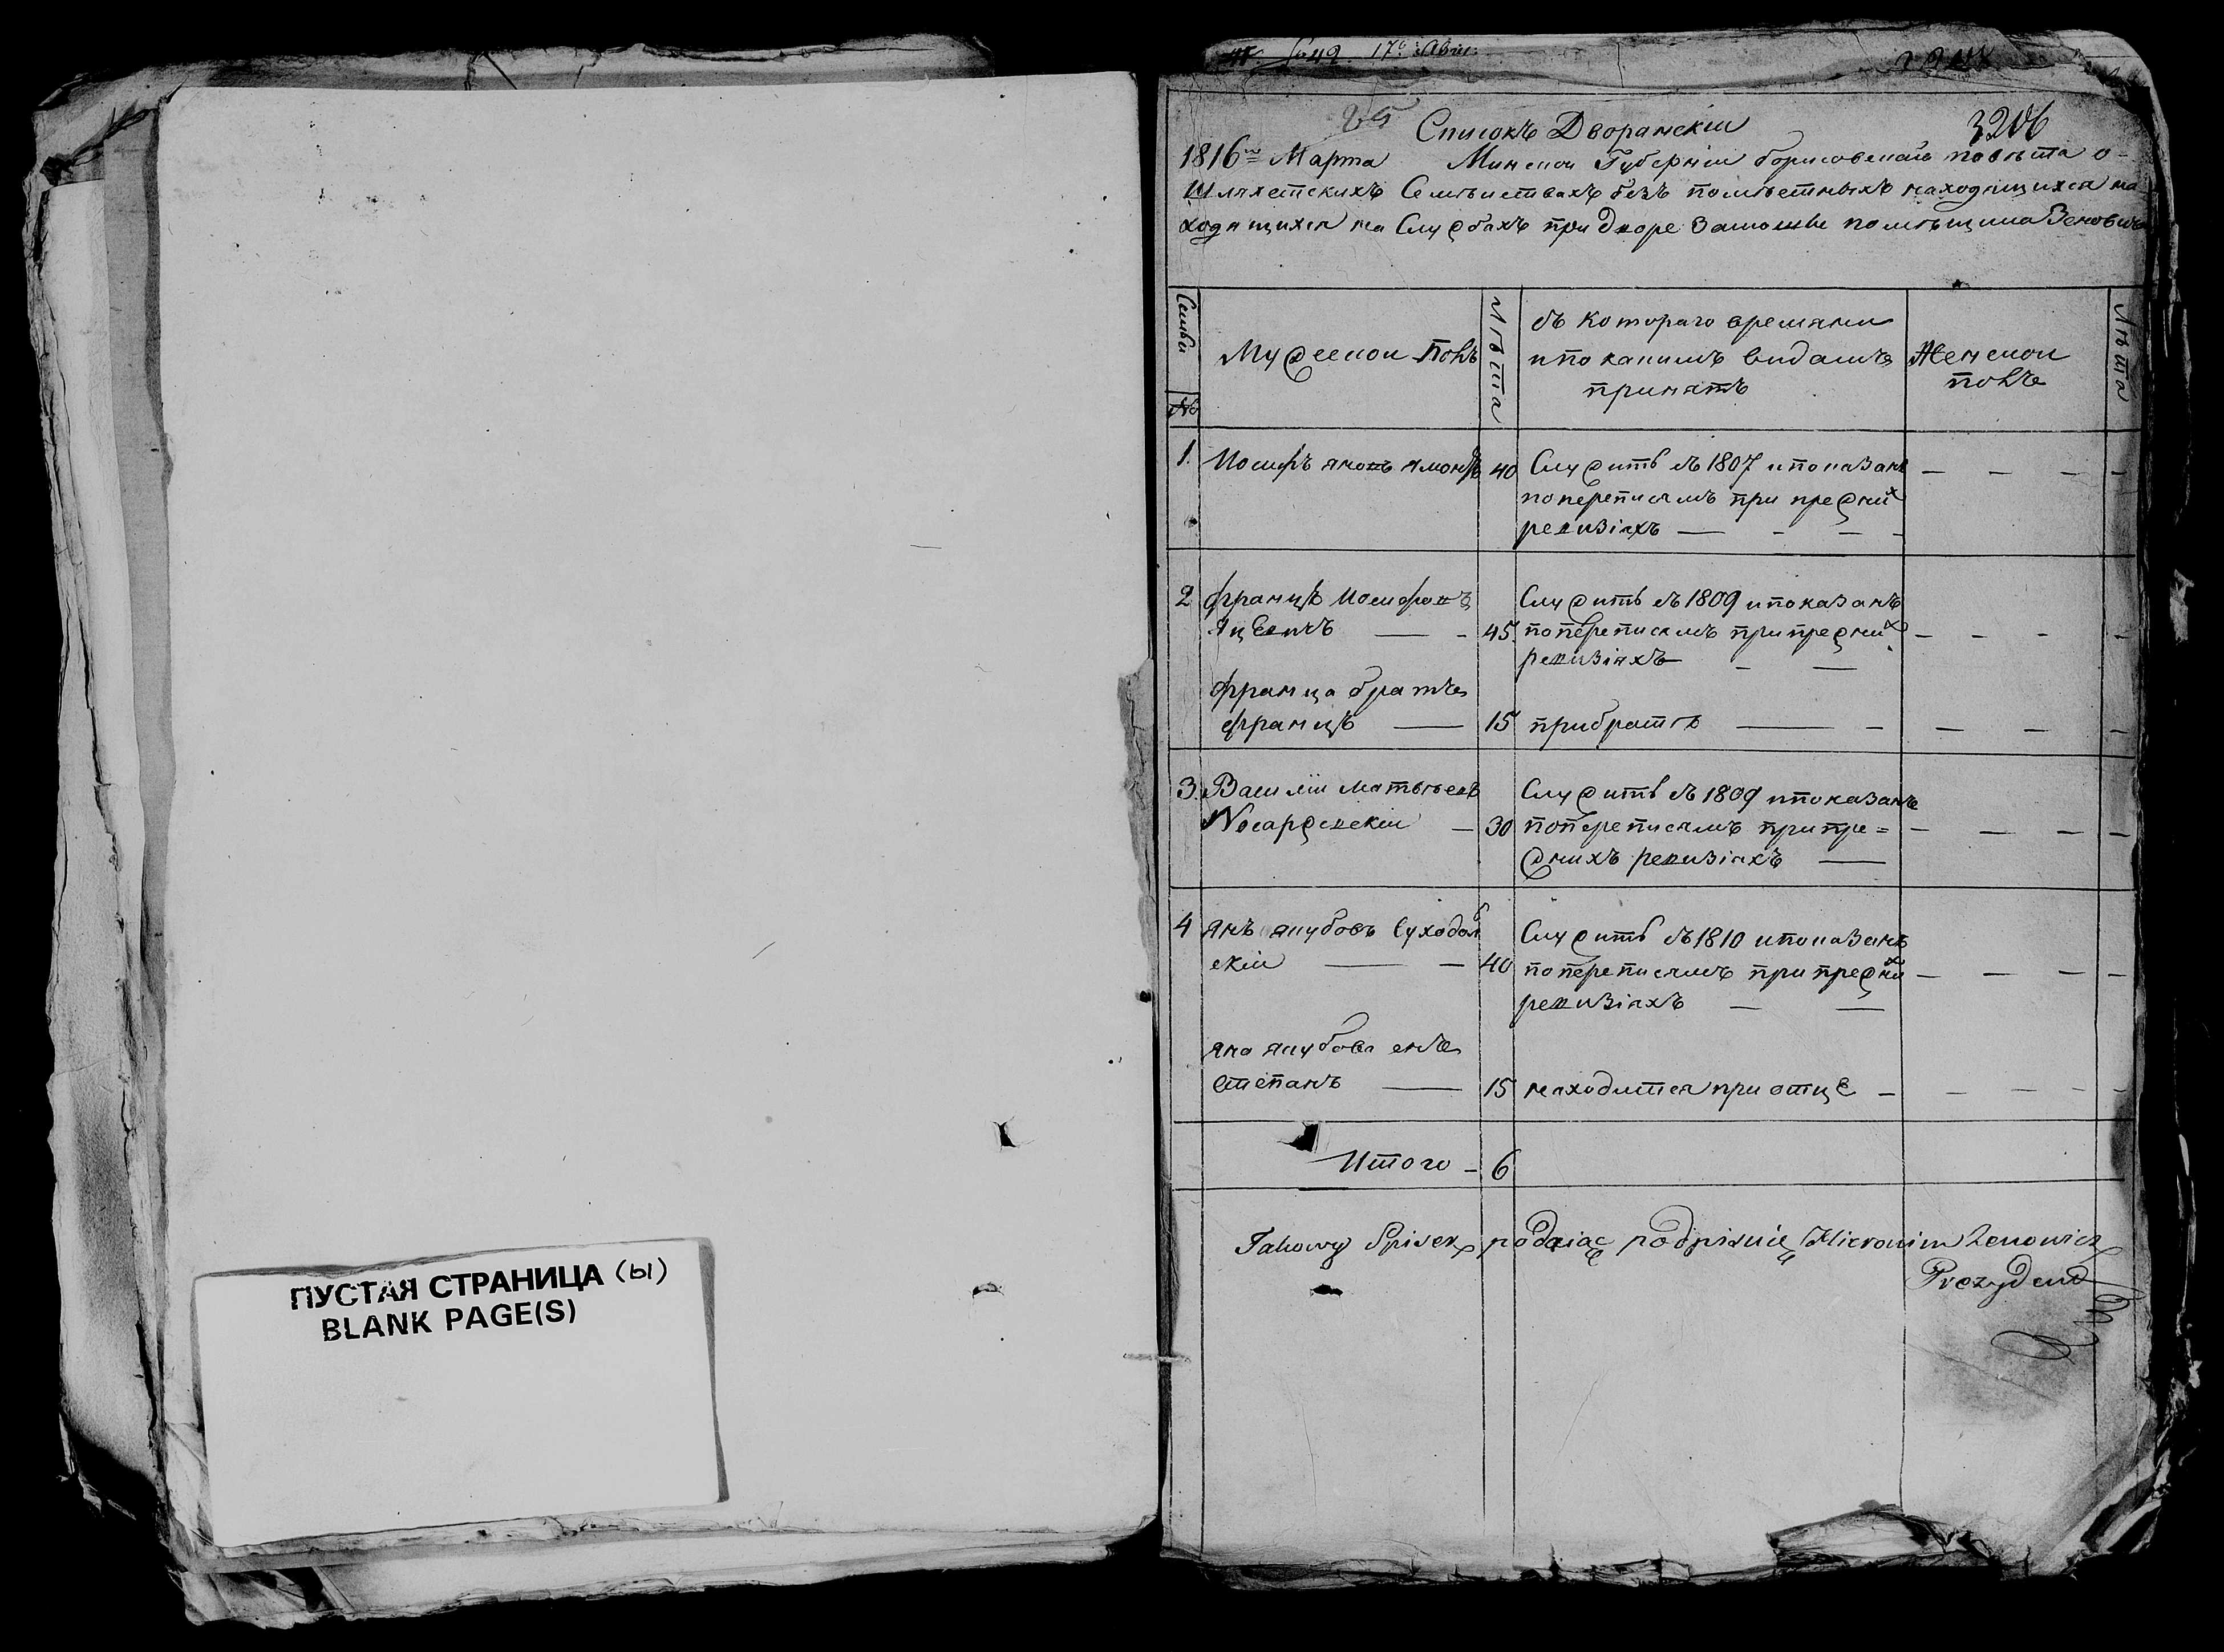 ПУСТАЯ СТРАНИЦА (ы)
BLANK PAGE(S)
42. 17° Авг.
25
Списокъ Дворянскiи 3206
1816го Марта Минской Губернiи борисовскаго повѣта о-
шляхетскихъ Семѣиствахъ безъ помѣстныхъ находящихся на-
ходящихся на Службахъ при дворе Замошьи помѣщика Зеновича
Семьи
№
Мужескои полъ
Лѣта
съ котораго времяни
и по какимъ видамъ
принятъ
Женскои
полъ
Лѣта
1. Иосифъ 40 Служитъ съ 1807 и показанъ
по переписямъ при преднихъ
ревизiяхъ
2 францъ Иосифовъ Служитъ съ 1809 и показанъ
Яцевичъ 45 по переписямъ при преднихъ
ревизiяхъ
франца братъ
францъ 15 при братѣ
3. Василiи Матвѣевъ Служитъ съ 1809 и показанъ
30 по переписямъ при пре=
днихъ ревизiяхъ
4 янъ якубовъ Суходоль Служитъ съ 1810 и показанъ
скiи 40 по переписямъ при преднихъ
ревизiяхъ
яна якубова снъ
степанъ 15 находится при отце
Итого - 6
Takowy Spisek podaiąc podpisuię Hieronim Zenowicz
Prezydent